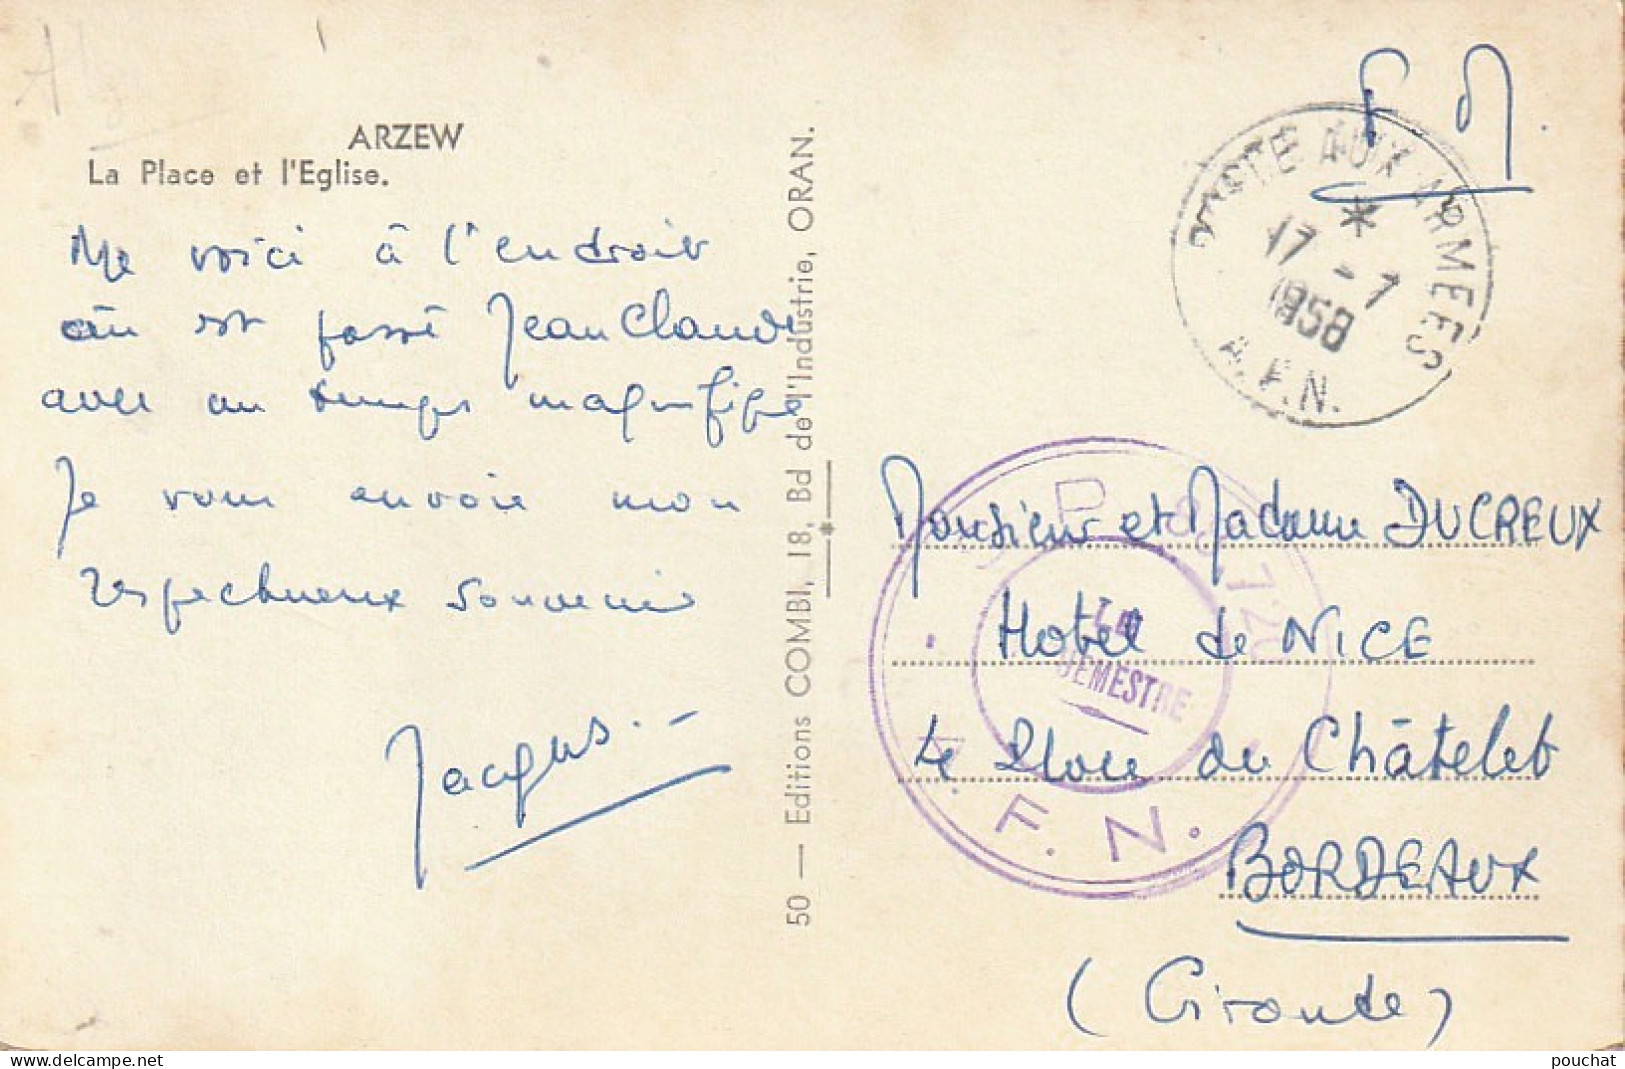 ARZEW
La Place et l'Eglise.
Me voici à l'endroit
où est passé Jean Claude
avec un temps magnifique
Je vous envoie mon
respectueux souvenir
Jacques
50 — Editions COMBI, 18, Bd de l'Industrie, ORAN.
F M.
POSTE AUX ARMEES
17 - 7
1958
A.F.N.
SEMESTRE
F. N.
Monsieur et Madame DUCREUX
Hotel de NICE
Place du Châtelet
BORDEAUX
(Gironde)
pouchat